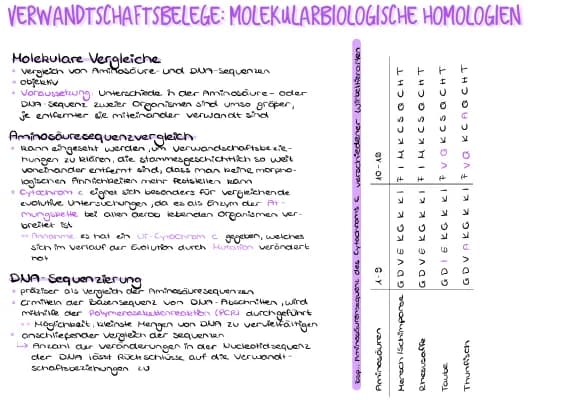 VERWANDTSCHAFTSBELEGE: MOLEKULARBIOLOGISCHE HOMOLOGIEN
Molekulare Vergleiche
Vergleich von Aminosäure- und DNA-Sequenzen
objektiv
Voraussetzung: Unterschiede in der Aminosäure- oder
DNA-Sequenz zweier Organismen sind umso größer,
je entfernter sie miteinander verwandt sind
Aminosäuresequenzvergleich
kann eingesetzt werden, um Verwandtschaftsbezie-
hungen zu klären, die stammesgeschichtlich so weit
voneinander entfernt sind, dass man keine morpho-
logischen Ähnlichkeiten mehr feststellen kann
Cytochrom c eignet sich besonders für vergleichende
evolutive Untersuchungen, da es als Enzym der At-
mungskette bei allen aerob lebenden Organismen ver-
breitet ist
Annahme: es hat ein Ur-Cytochrom c gegeben, welches
sich im Verlauf der Evolution durch Mutation verändert
hat
DNA-Sequenzierung
präziser als Vergleich der Aminosäuresequenzen
Ermitteln der Basensequenz von DNA-Abschnitten, wird
mithilfe der Polymerasekettenreaktion (PCR) durchgeführt
Möglichkeit, kleinste Mengen von DNA zu vervielfältigen
anschließender Vergleich der Sequenzen
↳ Anzahl der Veränderungen in der Nucleotidsequenz
der DNA lässt Rückschlüsse auf die Verwandt-
schaftsbeziehungen zu
Bsp.: Aminosäurensequenz des Cytochroms c verschiedener Wirbeltierarten
Aminosäuren 1-9 10-18
Mensch/Schimpanse G D V E K G K K I F I M K C S Q C H T
Rhesusaffe G D V E K G K K I F I M K C S Q C H T
Taube G D I E K G K K I F V Q K C S Q C H T
Thunfisch G D V A K G K K I F V Q K C A Q C H T